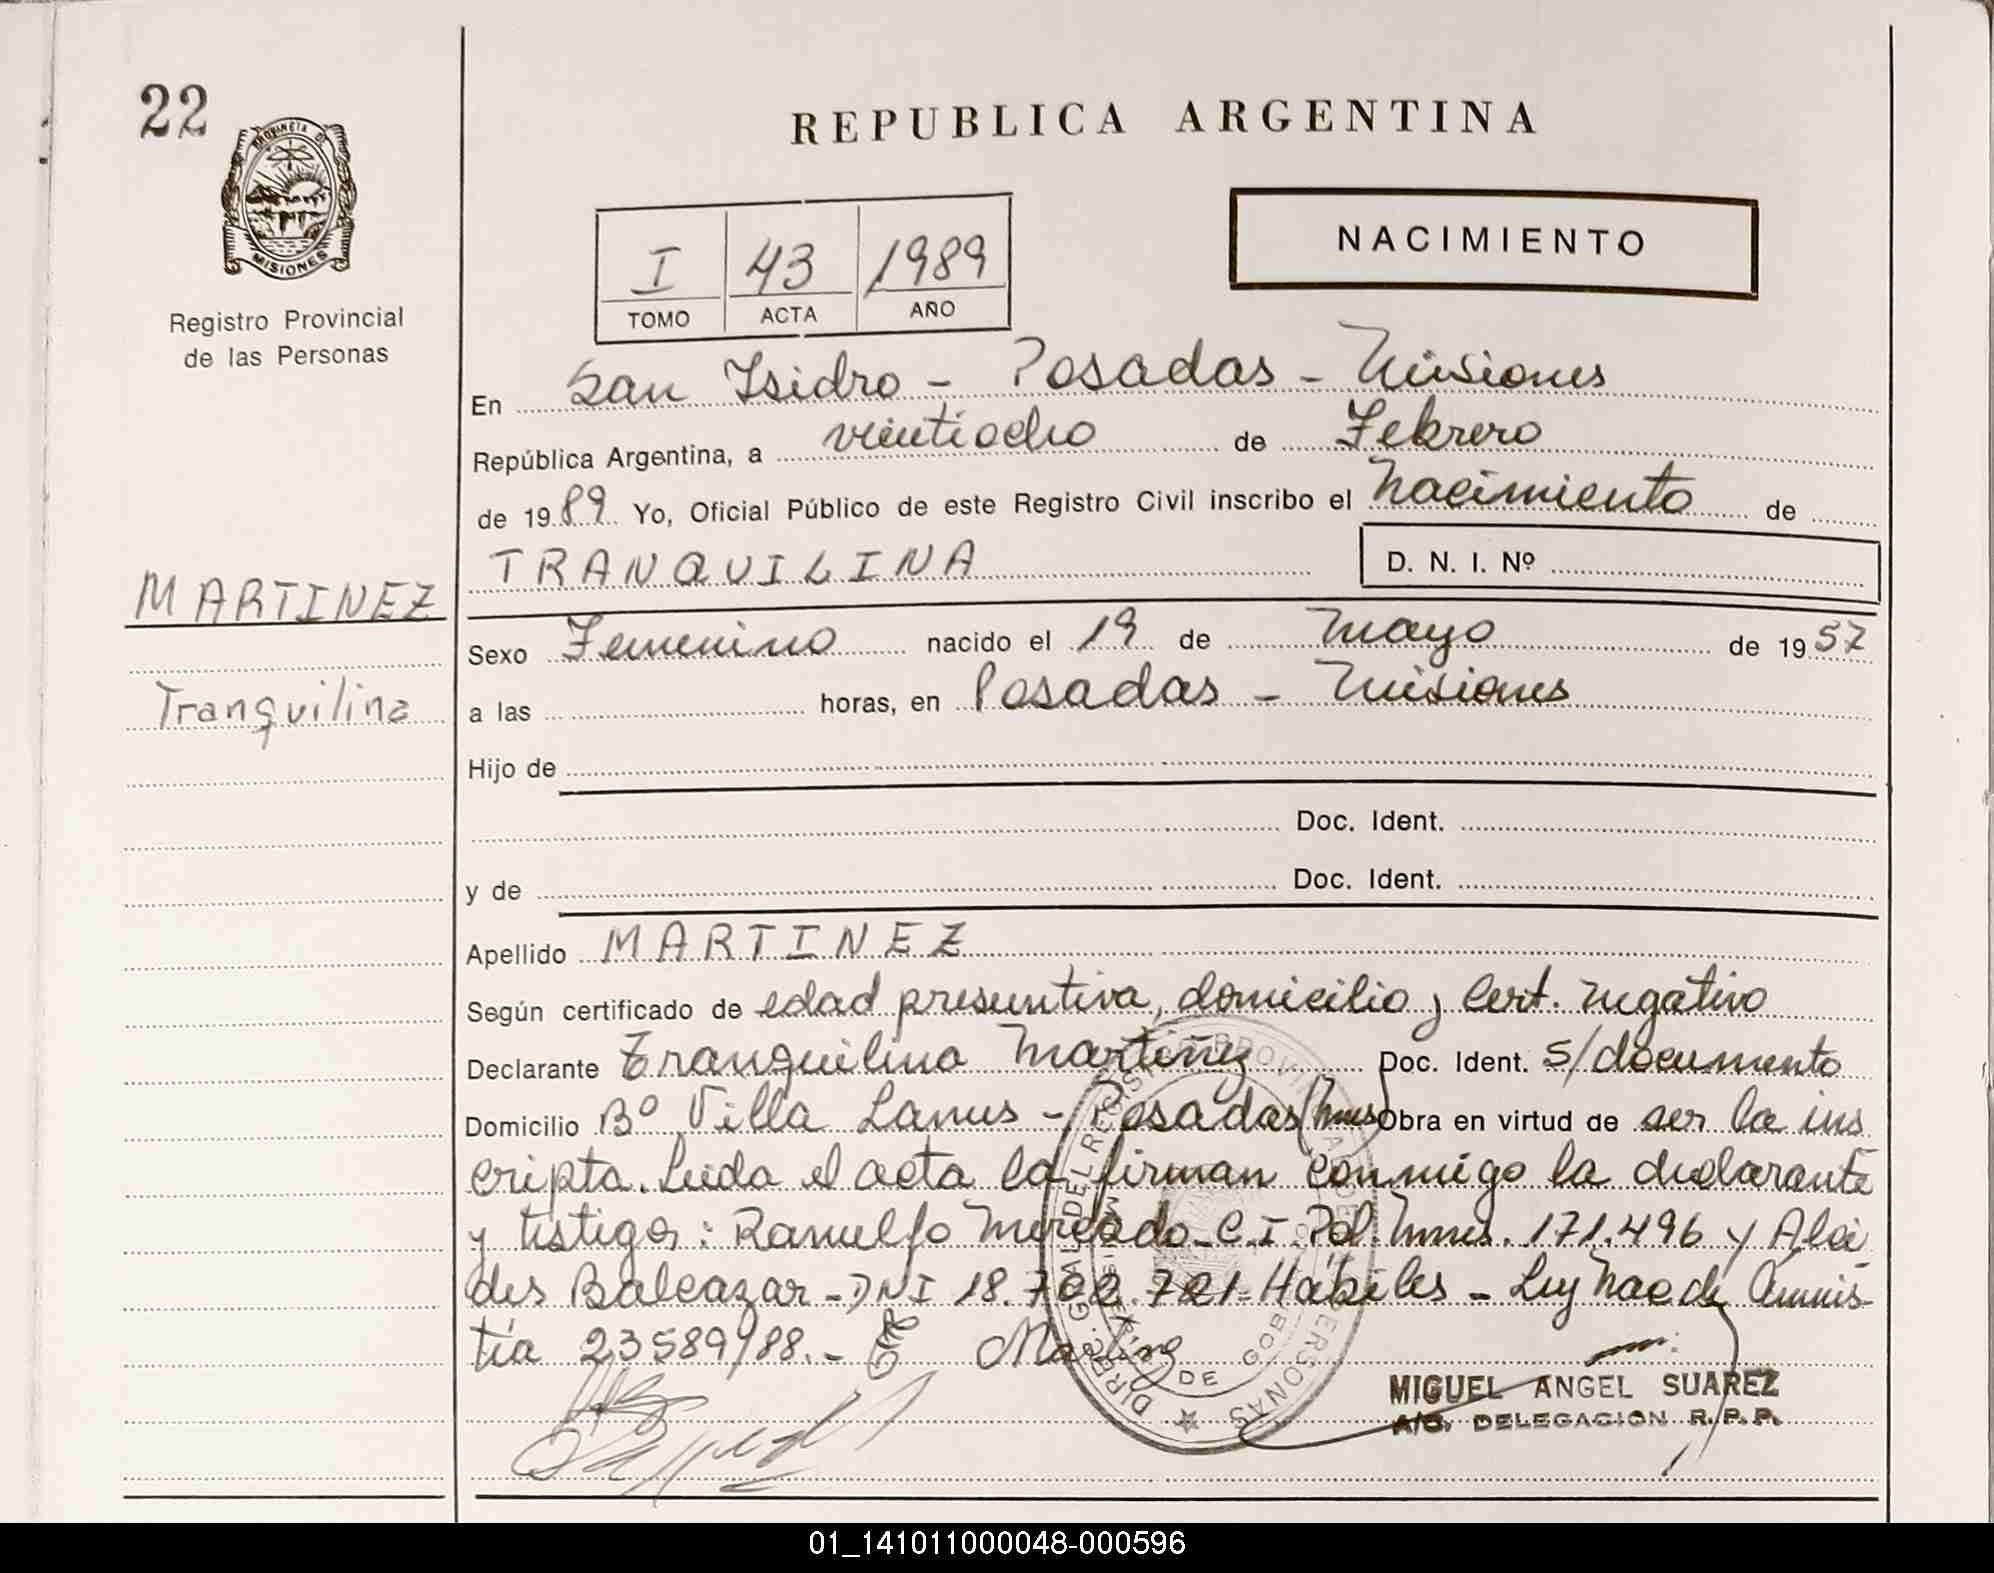 22
PROVINCIA DE
MISIONES
Registro Provincial
de las Personas
MARTINEZ
Tranquilina
REPUBLICA ARGENTINA
I 43 1989
TOMO ACTA AÑO
NACIMIENTO
En San Isidro - Posadas - Misiones
República Argentina, a veintiocho de Febrero
de 1989 Yo, Oficial Público de este Registro Civil inscribo el Nacimiento de
TRANQUILINA D. N. I. Nº
Sexo Femenino nacido el 19 de Mayo de 1957
a las horas, en Posadas - Misiones
Hijo de
Doc. Ident.
y de Doc. Ident.
Apellido MARTINEZ
Según certificado de edad presuntiva, domicilio y Cert. negativo
Declarante Tranquilina Martinez Doc. Ident. S/documento
Domicilio Bº Villa Lanus - Posadas (Mnes) Obra en virtud de ser la ins
cripta. Leida el acta la firman conmigo la declarante
y testigos: Ramulfo Mercado - C.I. Pol. Mnes. 171.496 y Alci
des Balcazar - DNI 18.702.721 - Hábiles - Ley Nac de Amnis
tía 23589/88.-
MIGUEL ANGEL SUAREZ
A/C. DELEGACION R. P. P.
DIREC. GRAL DEL REGISTRO PROVINCIAL DE LAS PERSONAS
01_141011000048-000596